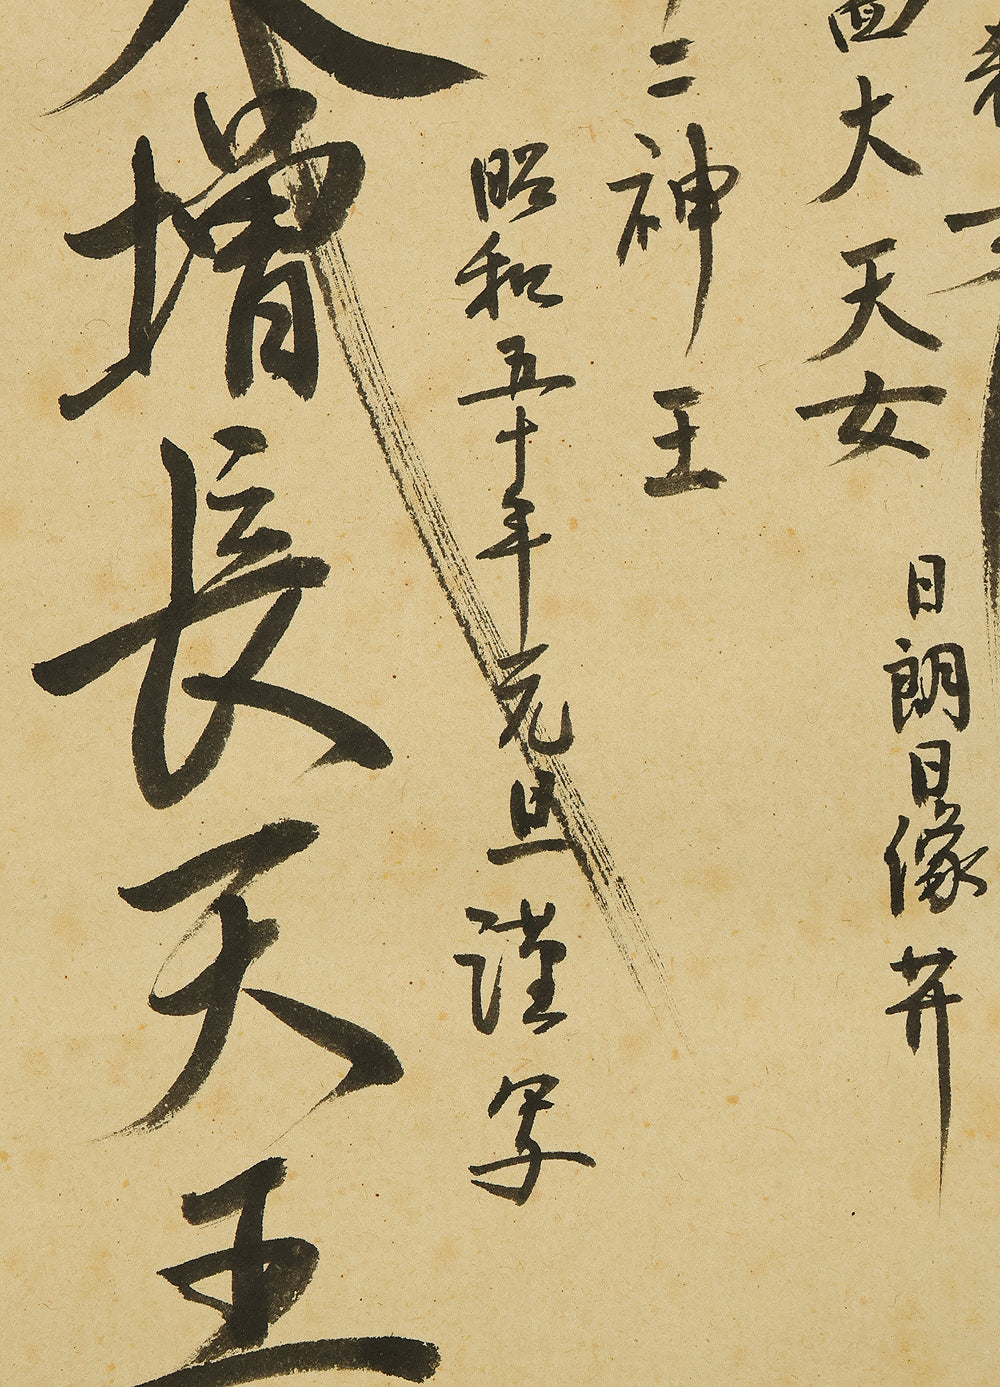 日朗日像𦬇
大天女
二神王
昭和五十年元旦謹写
増長天王